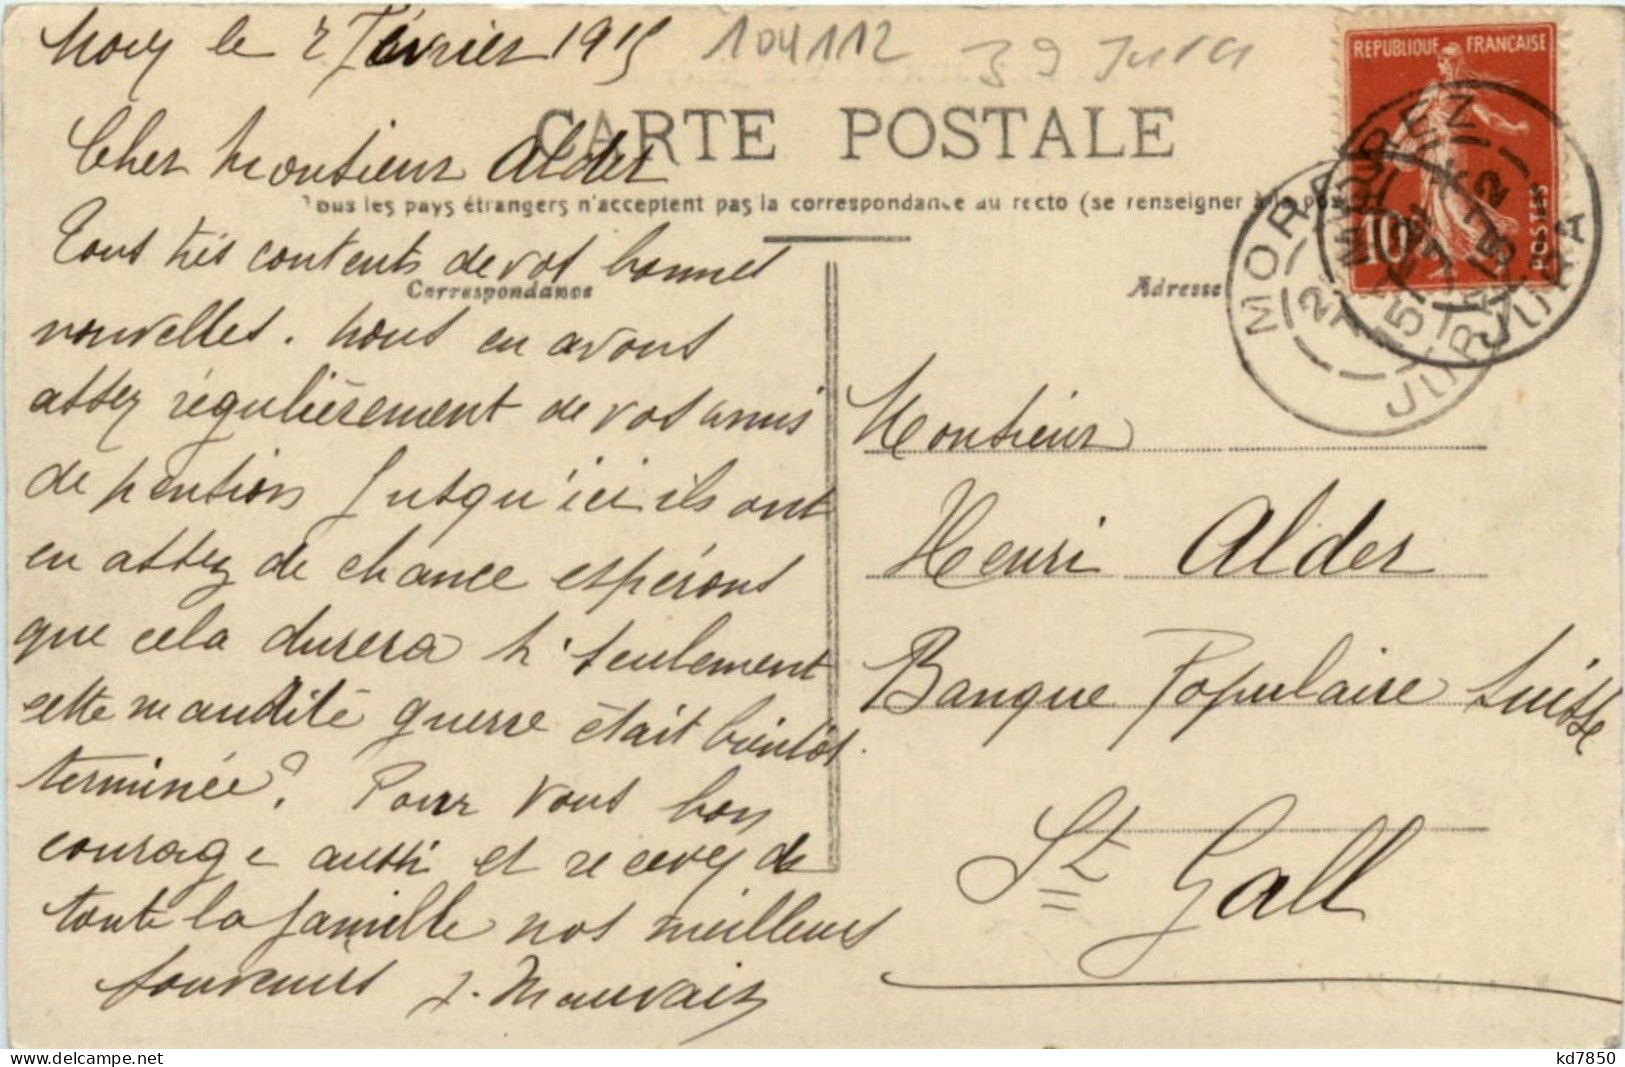 le 2 Février 1915
104112
39 Jura
REPUBLIQUE FRANÇAISE
10
POSTES
MOREZ
JURA
MOREZ
JURA
CARTE POSTALE
Tous les pays étrangers n'acceptent pas la correspondance au recto (se renseigner à la
Correspondance
Adresse
Cher Monsieur Alder
Tous très contents de vos bonnes
nouvelles. nous en avons
assez régulièrement de vos amis
de pension Jusqu'ici ils ont
eu assez de chance espérons
que cela durera si seulement
cette maudite guerre était bientôt
terminée? Pour vous bon
courage aussi et recevez de
toute la famille nos meilleurs
souvenirs J. Mauvais
Monsieur
Henri Alder
Banque Populaire Suisse
St Gall
delcampe.net
kd7850